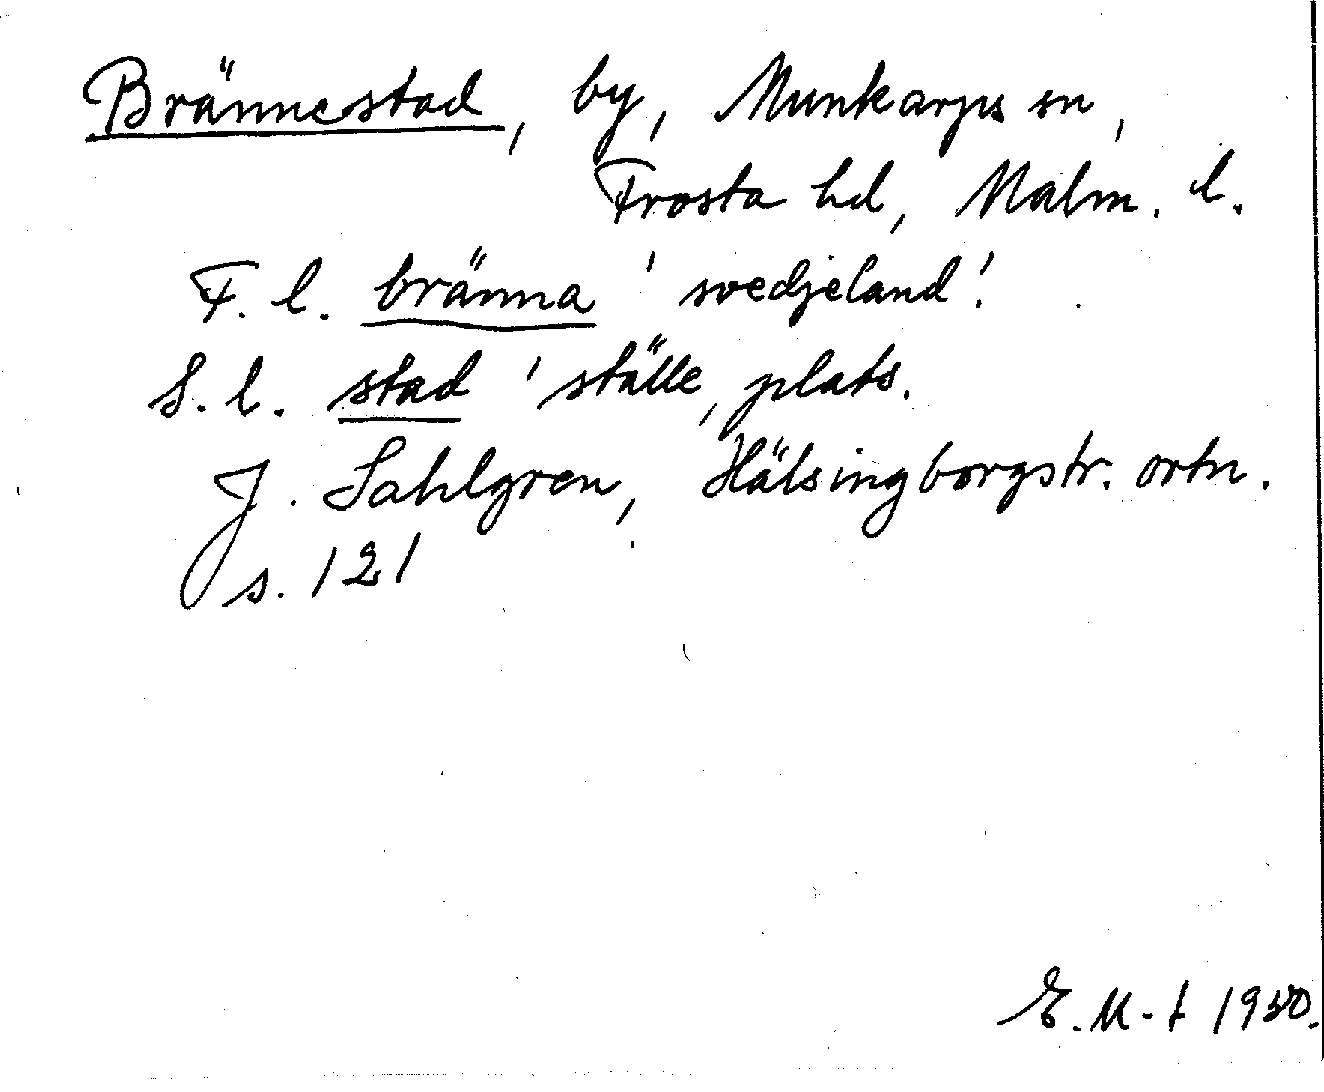 Brännestad, by, Munkarps sn,
Frosta hd, Malm. l.
F. l. bränna 'svedjeland'.
S. l. stad 'ställe, plats.
J. Sahlgren, Hälsingborgstr. ortn.
s. 121
E. M-t 1950.